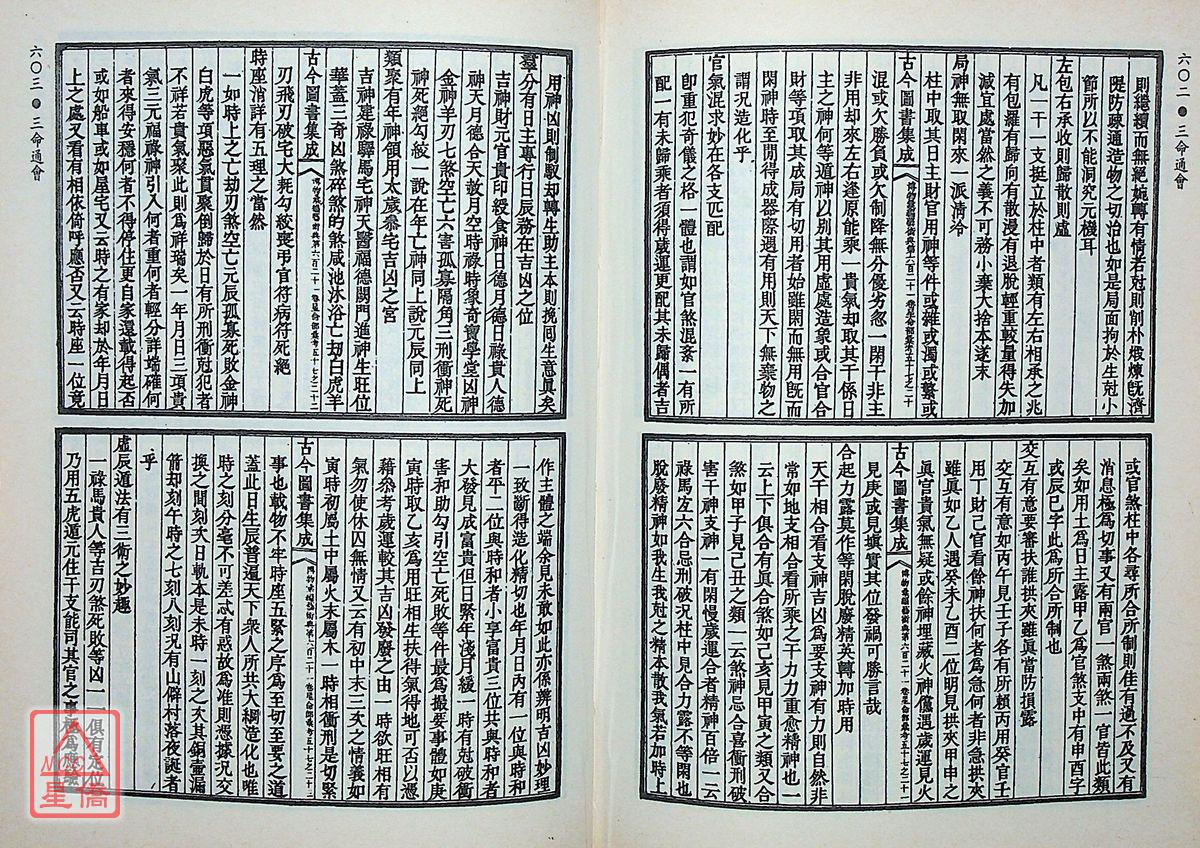 六〇二●三命通會
則繼續而無絕婉轉有情若尅則削朴煅煉旣濟
隄防疎通造物之切治也如是局面拘於生尅小
節所以不能洞究元機耳
左包右承收則歸散則虛
凡一干一支挺立於柱中者類有左右相承之兆
有包羅有歸向有散漫有退脫輕重較量得失加
減宜處當然之義不可務小棄大捨本逐末
局神無取閑來一派清冷
柱中取其日主財官用神等件或雜或濁或繁或
古今圖書集成
混或欠勝負或欠制降無分優劣忽一閑干非主
非用却來左右逢原能乘一貴氣却取其干係日
主之神何等遁神以别其用虛處造象或合官合
財等項取其成局有切用者始雖閑而無用旣而
閑神時至閒得成器際遇有用則天下無棄物之
謂況造化乎
官氣混求妙在各支匹配
卽重犯奇儀之格一體也謂如官煞混紊一有所
配一有未歸乘者須得歲運更配其未歸偶者吉
或官煞柱中各尋所合所制則佳有過不及又有
消息極爲切事又有兩官一煞兩煞一官皆此類
矣如用土爲日主露甲乙爲官煞支中有申酉字
或辰巳字此爲所合所制也
交互有意要審扶誰拱夾雖眞當防損露
交互有意如丙午見壬子各有所顧丙用癸官壬
用丁財己官看餘神扶何者爲急何者非急拱夾
雖眞如乙人遇癸未乙酉二位明見拱夾甲申之
眞官貴氣無疑或餘神埋藏火神儻遇歲運見火
古今圖書集成
見庚或見塡實其位發禍可勝言哉
合起力露莫作等閑脫廢精英轉加時用
天干相合看支神吉凶爲要支神有力則自然非
常如地支相合看所乘之干力力重愈精神也一
云上下俱合有眞合煞如己亥見甲寅之類又合
煞如甲子見己丑之類一云煞神忌合喜衝刑破
害干神支神一有閑慢歲運合者精神百倍一云
祿馬友六合忌刑破況柱中見合力露不等閑也
脫廢精神如我生我尅之精本散我氣若加時上
六〇三●三命通會
用神凶則制馭却轉生助主本則挽囘生意眞矣
羣分有日主專行日辰務在吉凶之位
吉神財元官貴印綬食神日德月德日祿貴人德
神天月德合天赦月空時祿時象奇寶學堂凶神
金神羊刃七煞空亡六害孤寡隔角三刑衝神死
神死絕勾絞一說在年亡神同上說元辰同上
類聚有年神領用太歲叅宅吉凶之宮
吉神建祿驛馬宅神天醫福德闕門進神生旺位
華蓋三奇凶煞碎煞的煞咸池沐浴亡刧白虎羊
古今圖書集成
刃飛刃破宅大耗勾絞喪弔官符病符死絕
時座消詳有五理之當然
一如時上之亡劫刃煞空亡元辰孤寡死敗金神
白虎等項惡氣貫聚倒歸於日有所刑衝尅犯者
不祥若貴氣聚此則爲祥瑞矣一年月日三項貴
氣三元福祿神引入何者重何者輕分詳端確何
者來得安穩何者不得停住更自家還載得起否
或如船車或如屋宅又云時之有家却於年月日
上之處又看有相依倚呼應否又云時座一位竟
作主體之端余見未敢如此亦係辨明吉凶妙理
一致斷得造化精切也年月日丙有一位與時和
者平二位與時和者小享富貴三位共與時和者
大發見成富貴但日緊年淺月緩一時有尅破衝
害和助勾引空亡死敗等件最爲撮要事體如庚
寅時取乙亥爲用旺相生扶得氣得地可否以憑
藉叅考歲運較其吉凶發廢之由一時欲旺相有
氣勿使休囚無情又云有初中末三次之情義如
寅時初屬土中屬火末屬木一時相衝刑是切緊
古今圖書集成
事也載物不牢時座五緊之序爲至切至要之道
蓋此日生辰普遍天下衆人所共大綱造化也唯
時之刻分毫不可差忒有惑故爲准則憑據況交
換之間刻次日軌本是未時一刻之次其銅壷漏
箭却刻午時之七刻八刻況有山僻村落夜誕者
乎
虛辰遁法有三衝之妙趣
一祿馬貴人等吉刃煞死敗等凶一一俱有定位
乃用五虎遁元住干支能司其官之事極爲應驗
星僑